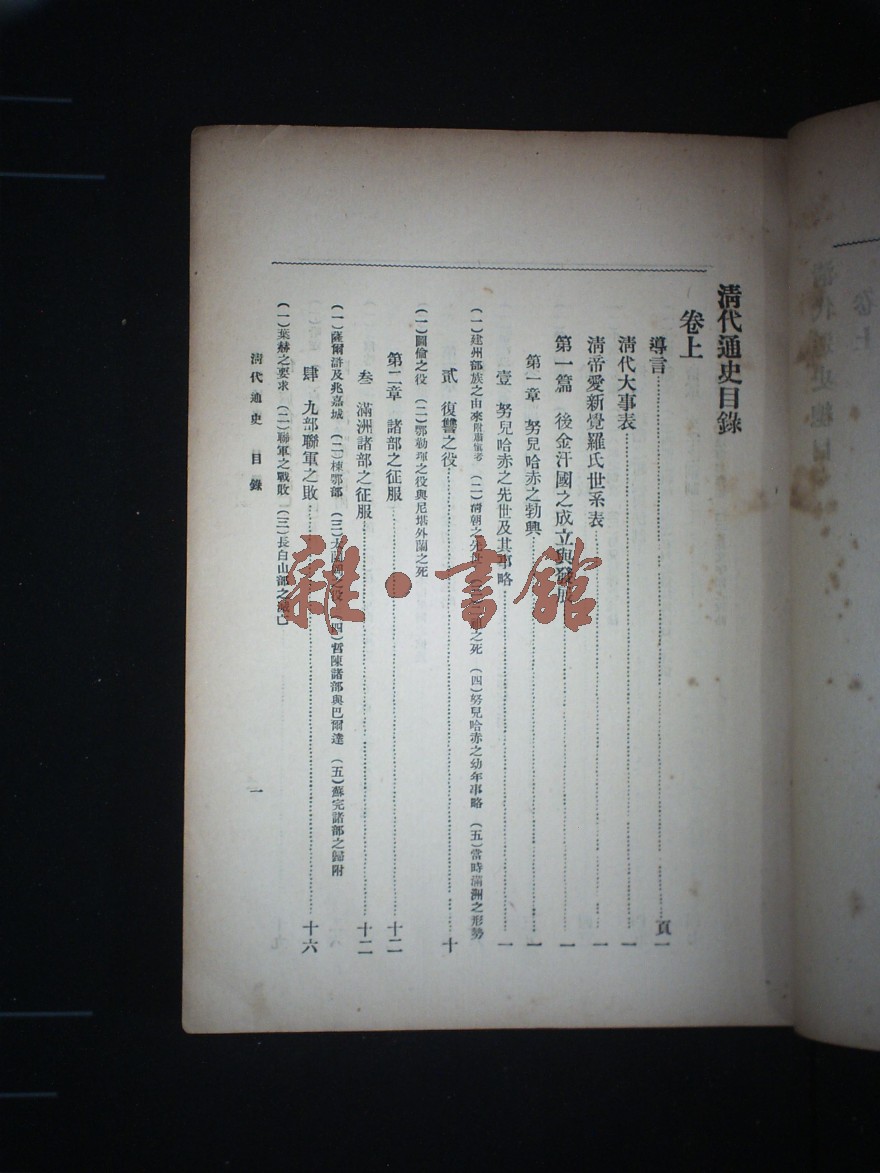 清代通史目錄
卷上
導言 頁一
清代大事表 一
清帝愛新覺羅氏世系表 一
第一篇 後金汗國之成立與發展 一
第一章 努兒哈赤之勃興 一
壹 努兒哈赤之先世及其事略 一
(一)建州部族之由來 (二)清朝之先世 之死 (四)努兒哈赤之幼年事略 (五)當時滿洲之形勢
貳 復讐之役 十
(一)圖倫之役 (二)鄂勒琿之役與尼堪外蘭之死
第二章 諸部之征服 十二
叁 滿洲諸部之征服 十二
(一)薩爾滸及兆嘉城 (二)棟鄂部 (三) 之役 (四)哲陳諸部與巴爾達 (五)蘇完諸部之歸附
肆 九部聯軍之敗 十六
(一)葉赫之要求 (二)聯軍之戰敗 (三)長白山部之滅亡
清代通史 目錄
一
雜·書館